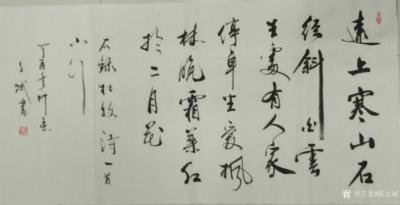 遠上寒山石
徑斜白雲
生處有人家
停車坐愛楓
林晚霜葉紅
於二月花
右錄杜牧詩一首
山行
丁酉年
文斌書